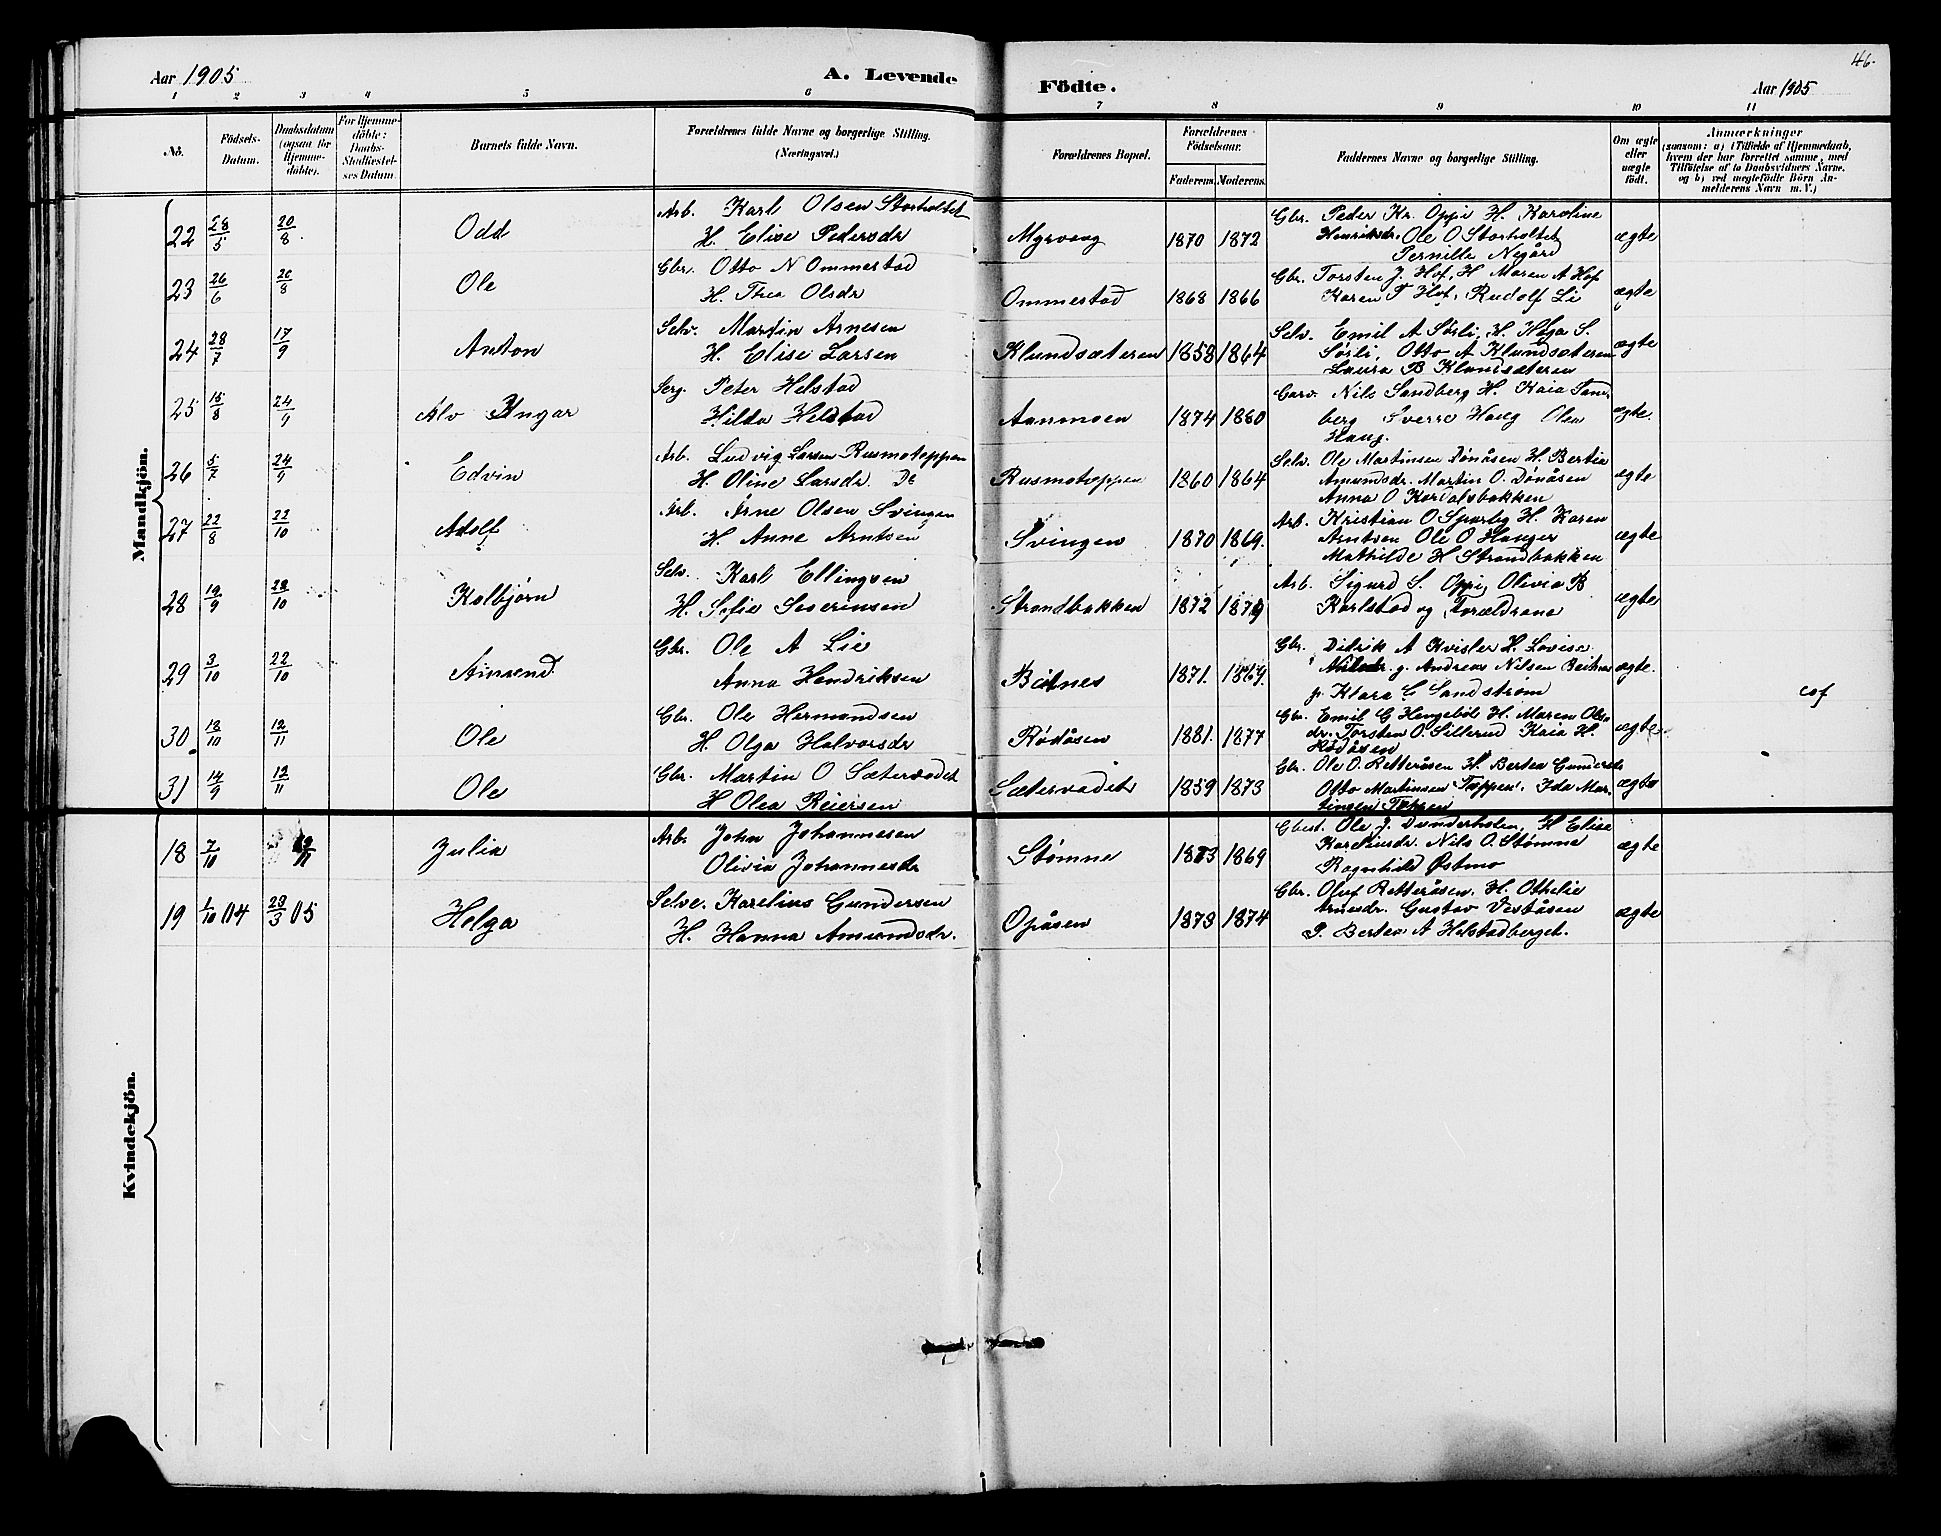 46.
Aar 1905 A. Levende Födte. Aar 1905
1 2 3 4 5 6 7 8 9 10 11
Nö.
Födsels-
Datum.
Daabsdatum
(ogsaa for
Hjemme-
döbte).
For Hjemme-
döbte:
Daabs-
Stadfæstel-
ses Datum.
Barnets fulde Navn.
Forældrenes fulde Navne og borgerlige Stilling.
(Næringsvei.)
Forældrenes Bopæl.
Forældrenes
Födselsaar.
Faderens. Moderens.
Faddernes Navne og borgerlige Stilling.
Om ægte
eller
uægte
födt.
Anmærkninger
(saasom: a) i Tilfælde af Hjemmedaab,
hvem der har forrettet samme, med
Tilföielse af to Daabsvidners Navne,
og b) ved uægtefödte Börn An-
melderens Navn m. V.)
Mandkjön.
22 28/5 20/8 Odd
Arb. Karl Olsen Storholtet
H. Elise Pedersdr
Myrvang 1870 1872
Gbr. Peder Kr. Oppi H. Karoline
Henriksdr. Ole O Storholtet
Pernille Negård
ægte
23 26/6 20/8 Ole
Gbr. Otto N Ommestad
H. Thea Olsdr
Ommestad 1868 1866
Gbr. Torsten J. Hof, H Maren A Hof
Karen T Hof, Rudolf Li
ægte
24 28/7 17/9 Anton
Selv. Martin Arnesen
H. Elise Larsen
Klundsæteren 1858 1864
Selv. Emil A Sørli, H. Helga S.
Sørli, Otto A Klundsæteren
Laura B Klundsæteren
ægte
25 15/8 24/9 Alv Yngar
Serg. Peter Helstad
Hilda Helstad
Aanmoen 1874 1880
Garv. Nils Sandberg H. Kaia Sand-
berg Sverre Haug Olea
Haug.
ægte.
26 5/7 24/9 Edvin
Arb. Ludvig Larsen Rusmoteppen
H. Oline Larsdr. De
Rusmoteppen 1860 1864
Selv. Ole Martinsen Dønåsen H. Bertia
Amundsdr. Martin O. Dønåsen
Anna O Kordalsbakken
ægte
27 22/8 22/10 Adolf
Arb. Arne Olsen Svingen
H. Anne Arntsen
Svingen 1870 1869.
Arb. Kristian O Sparby H. Karen
Arntsen Ole O Hauger
Mathilde H Strandbakken
ægte
28 19/9 22/10 Kolbjørn
Selv. Karl Ellingsen
H. Sofie Severinsen
Strandbakken 1872 1879
Arb. Sigurd S. Oppi, Olivia B
Karlstad og Forældrene
ægte
29 3/10 22/10 Amund
Gbr. Ole A Lie
Anna Hendriksen
Beitnes 1871. 1869.
Gbr. Didrik A Kvisler H. Lovise
Nilsdr. g. Andreas Nilsen Beitnes
p. Klara C Sandstrøm
ægte.
cof
30. 18/10 12/11 Ole
Gbr. Ole Hermandsen
H. Olga Halvorsdr
Rødåsen 1881. 1877
Gbr. Emil G Hengebøl H. Maren Ols-
dr. Torsten O. Sillerud Kaia H.
Rødåsen
ægte
31 14/9 12/11 Ole
Gbr. Martin O Sætervadet
H Olea Reiersen
Sætervadet 1859 1873
Gbr. Ole O. Retteråsen H. Bertea Gundersdr
Otto Martinsen Tappen, Ida Mar-
tinsen Tappen
ægte
Kvindekjön.
18 7/10 19/11 Julia
Arb. John Johannesen
Olivia Johannesdr
Stømne 1873 1869
Gbest. Ole J. Dunderholen, H Elise
Kareliusdr. Nils O. Stømne
Ragnhild Østmo
ægte
19 1/10 04 23/3 05 Helga
Selve. Karelius Gundersen
H. Hanna Amundsdr.
Opåsen 1873 1874
Gbr. Oluf Retteråsen. H. Othelie
Arnesdr. Gustav Veståsen
P. Bertea A Helstadberget.
ægte